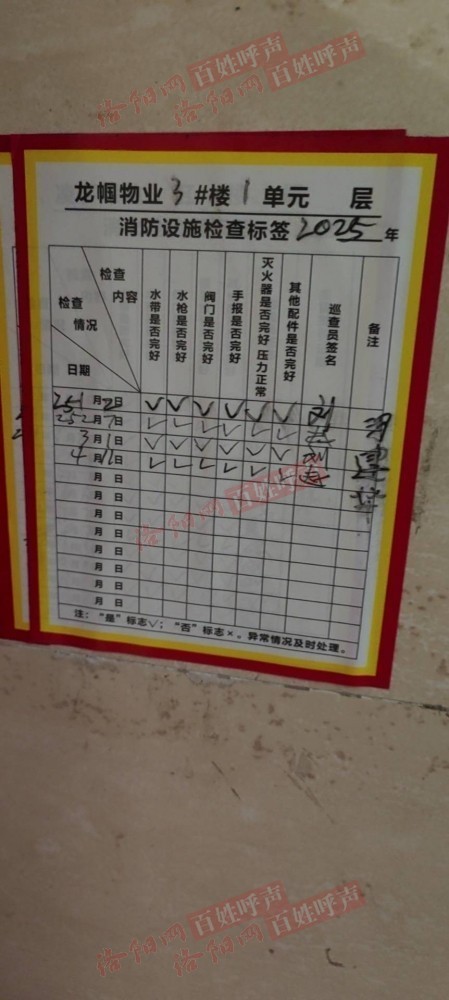 洛阳网 百姓呼声
洛阳网 百姓呼声
龙帼物业 3 #楼 1 单元 层
消防设施检查标签 2025 年
检查内容
检查情况
日期
水带是否完好
水枪是否完好
阀门是否完好
手报是否完好
灭火器是否完好 压力正常
其他配件是否完好
巡查员签名
备注
25 1 月 2 日 √ √ √ √ √ √ 刘
25 2 月 7 日 √ √ √ √ √ √
3 月 1 日 √ √ √ √ √ √ 刘
4 月 日 √ √ √ √ √ √
月 日
月 日
月 日
月 日
月 日
月 日
月 日
月 日
注：“是”标志√；“否”标志×。异常情况及时处理。
洛阳网 百姓呼声
洛阳网 百姓呼声
洛阳网 百姓呼声